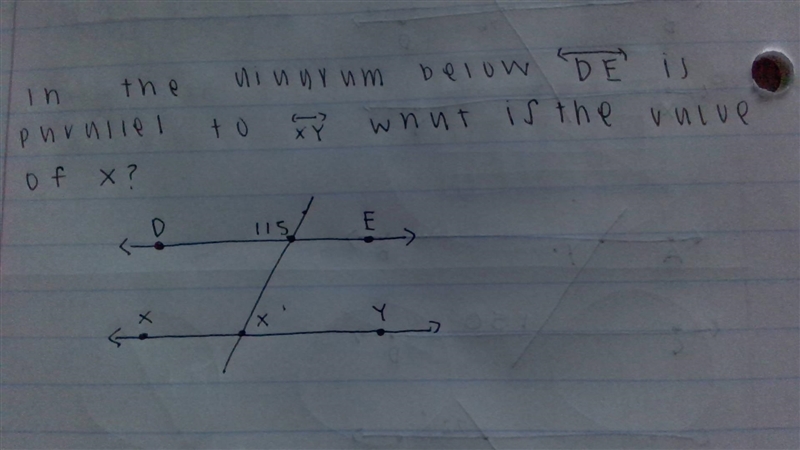 in the diagram below DE is
parallel to XY what is the value
of x?
D 115 E
X x Y